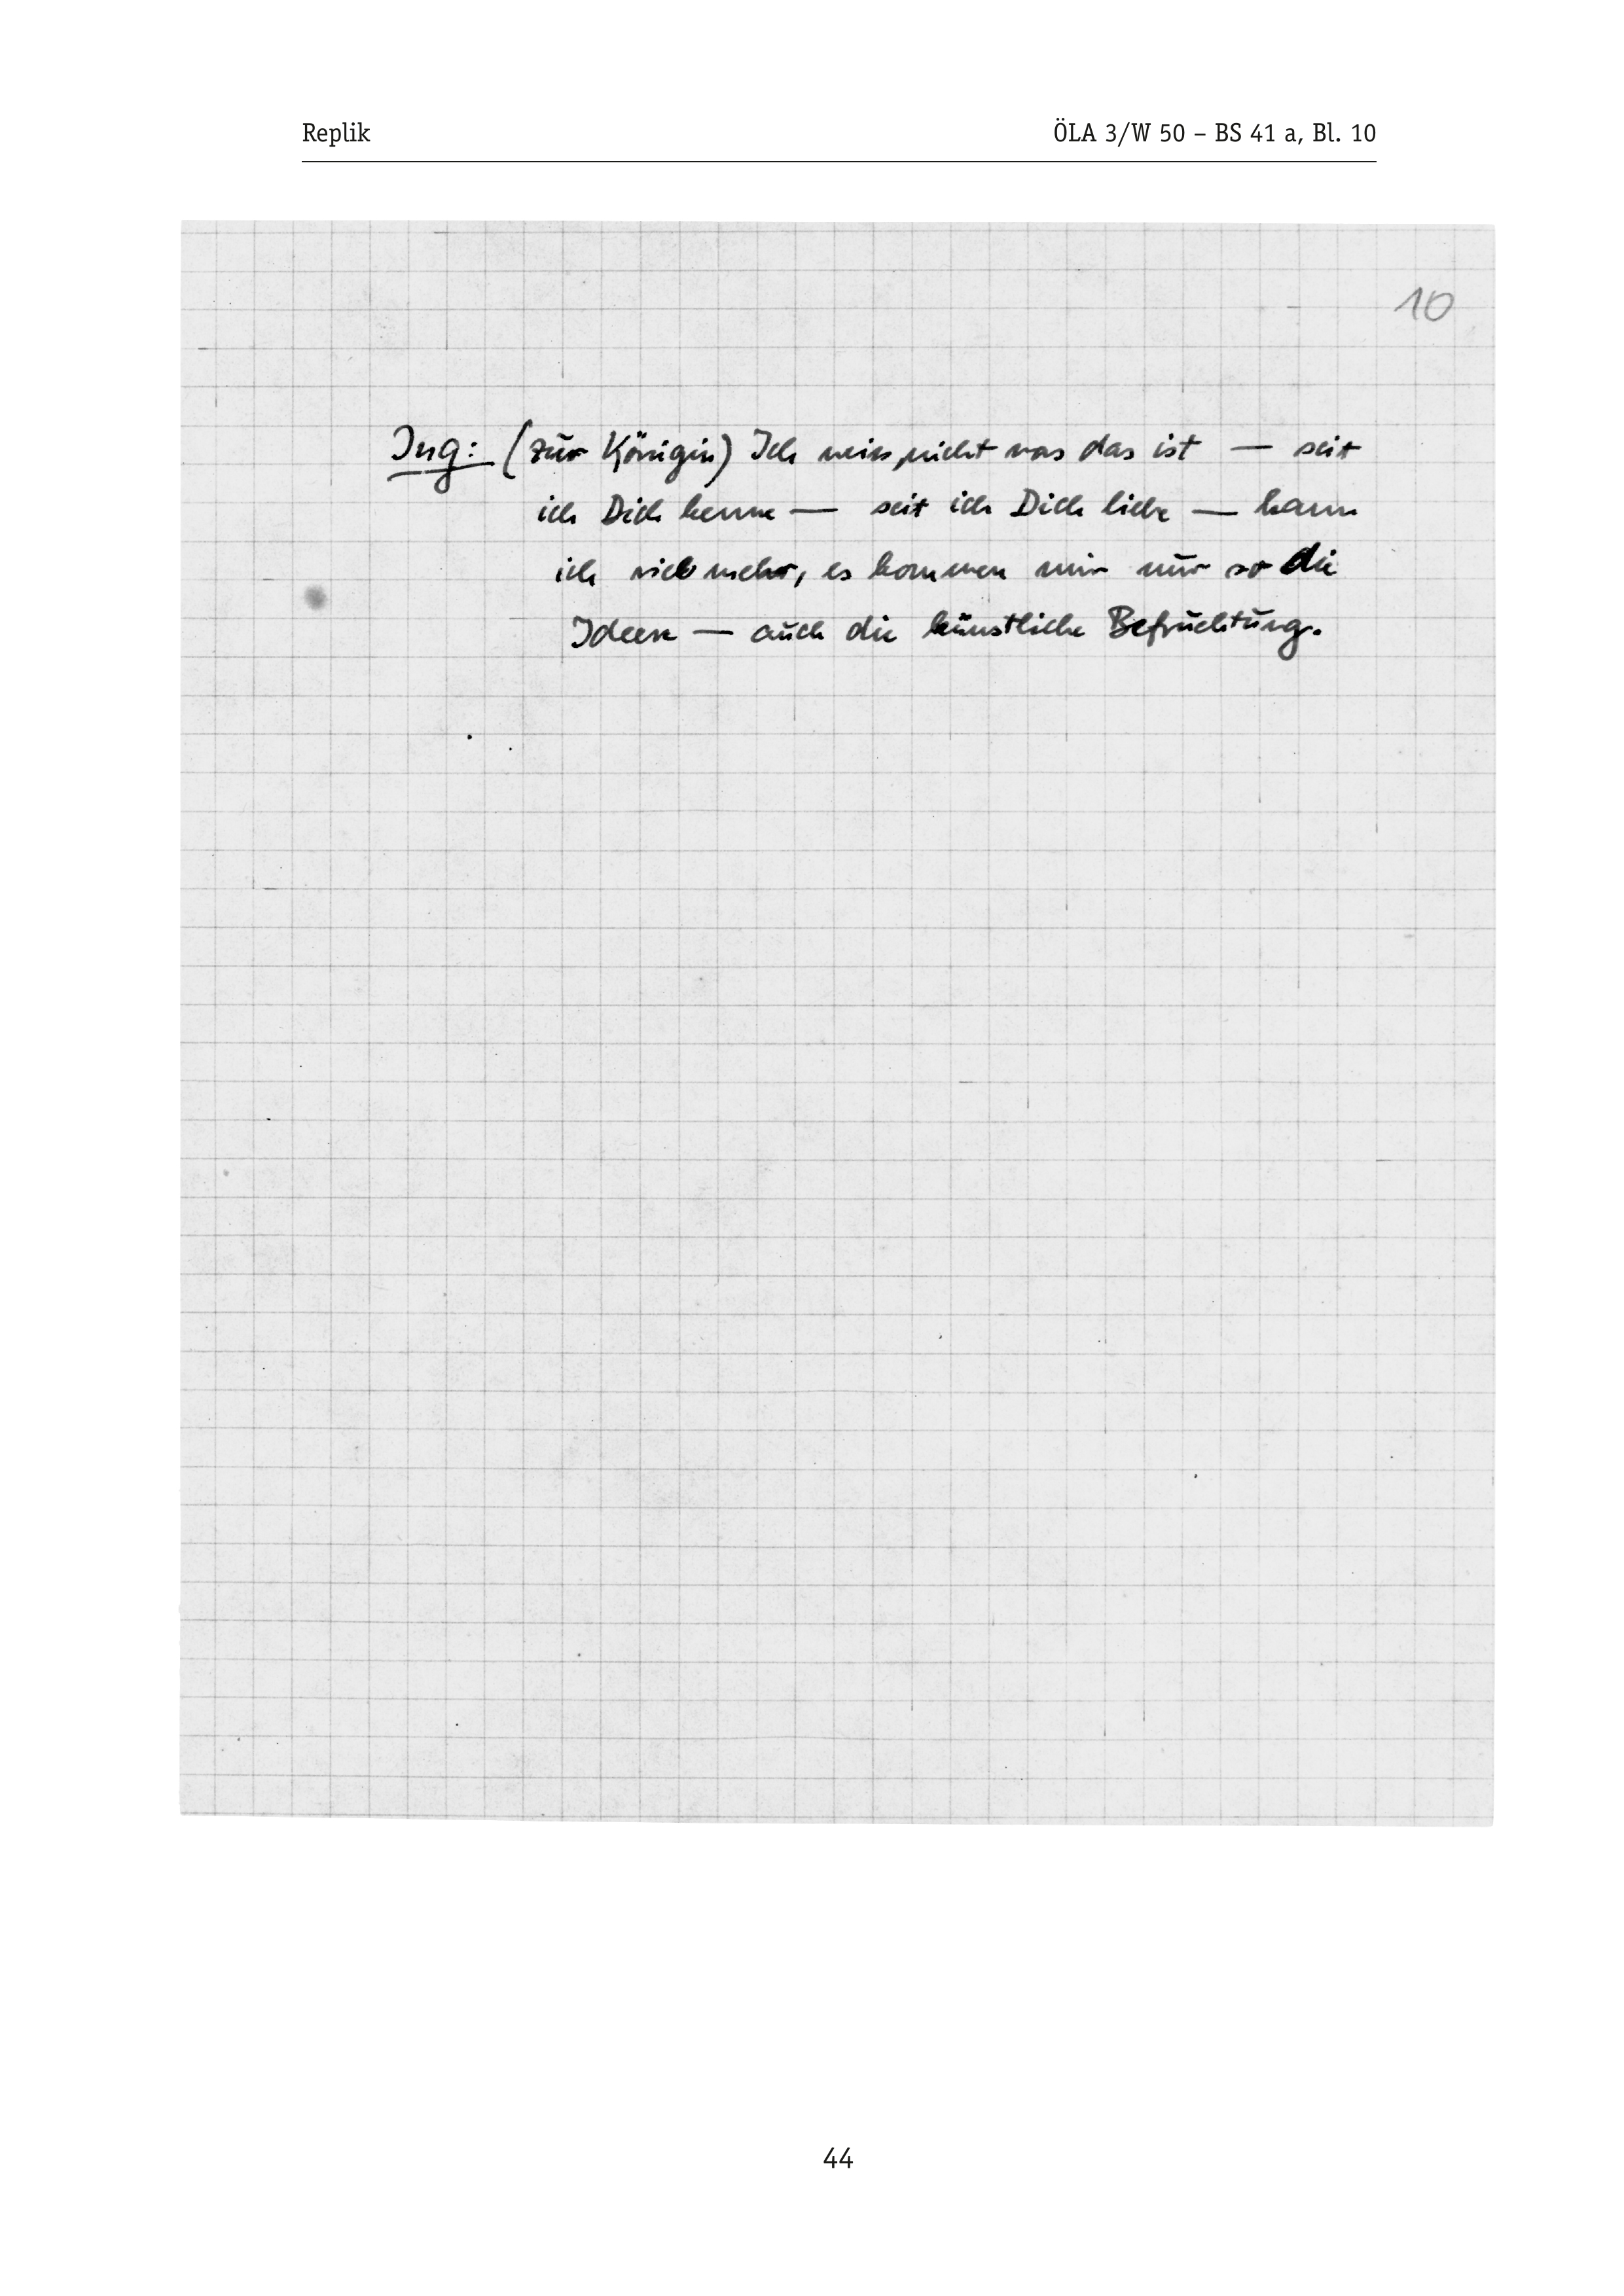 Replik
ÖLA 3/W 50 – BS 41 a, Bl. 10
10
Ing: (zur Königin) Ich weiss nicht was das ist — seit
ich Dich kenne — seit ich Dich liebe — kann
ich viel mehr, es kommen mir nur so die
Ideen — auch die künstliche Befruchtung.
44